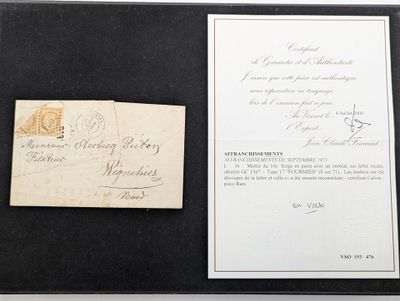 Monsieur Sterbecq Piéton
Filateur
Wignehies
Nord
Certificat
de Garantie et d'Authenticité
J'assure que cette pièce est authentique
sans réparation ni truquage,
lors de l'examen fait ce jour.
Au Vésinet le 4 Juillet 2000
l'Expert,
AFFRANCHISSEMENTS
AFFRANCHISSEMENTS DE SEPTEMBRE 1871
L. 36 Moitié du 10c. Siège en paire avec un normal, sur lettre locale,
oblitéré GC 1567 + Type 17 "FOURMIES" (8 sept 71). Les timbres ont été
découpés de la lettre et celle-ci a été ensuite reconstituée - certificat Calves -
pièce Rare
au verso
VSO 193 476